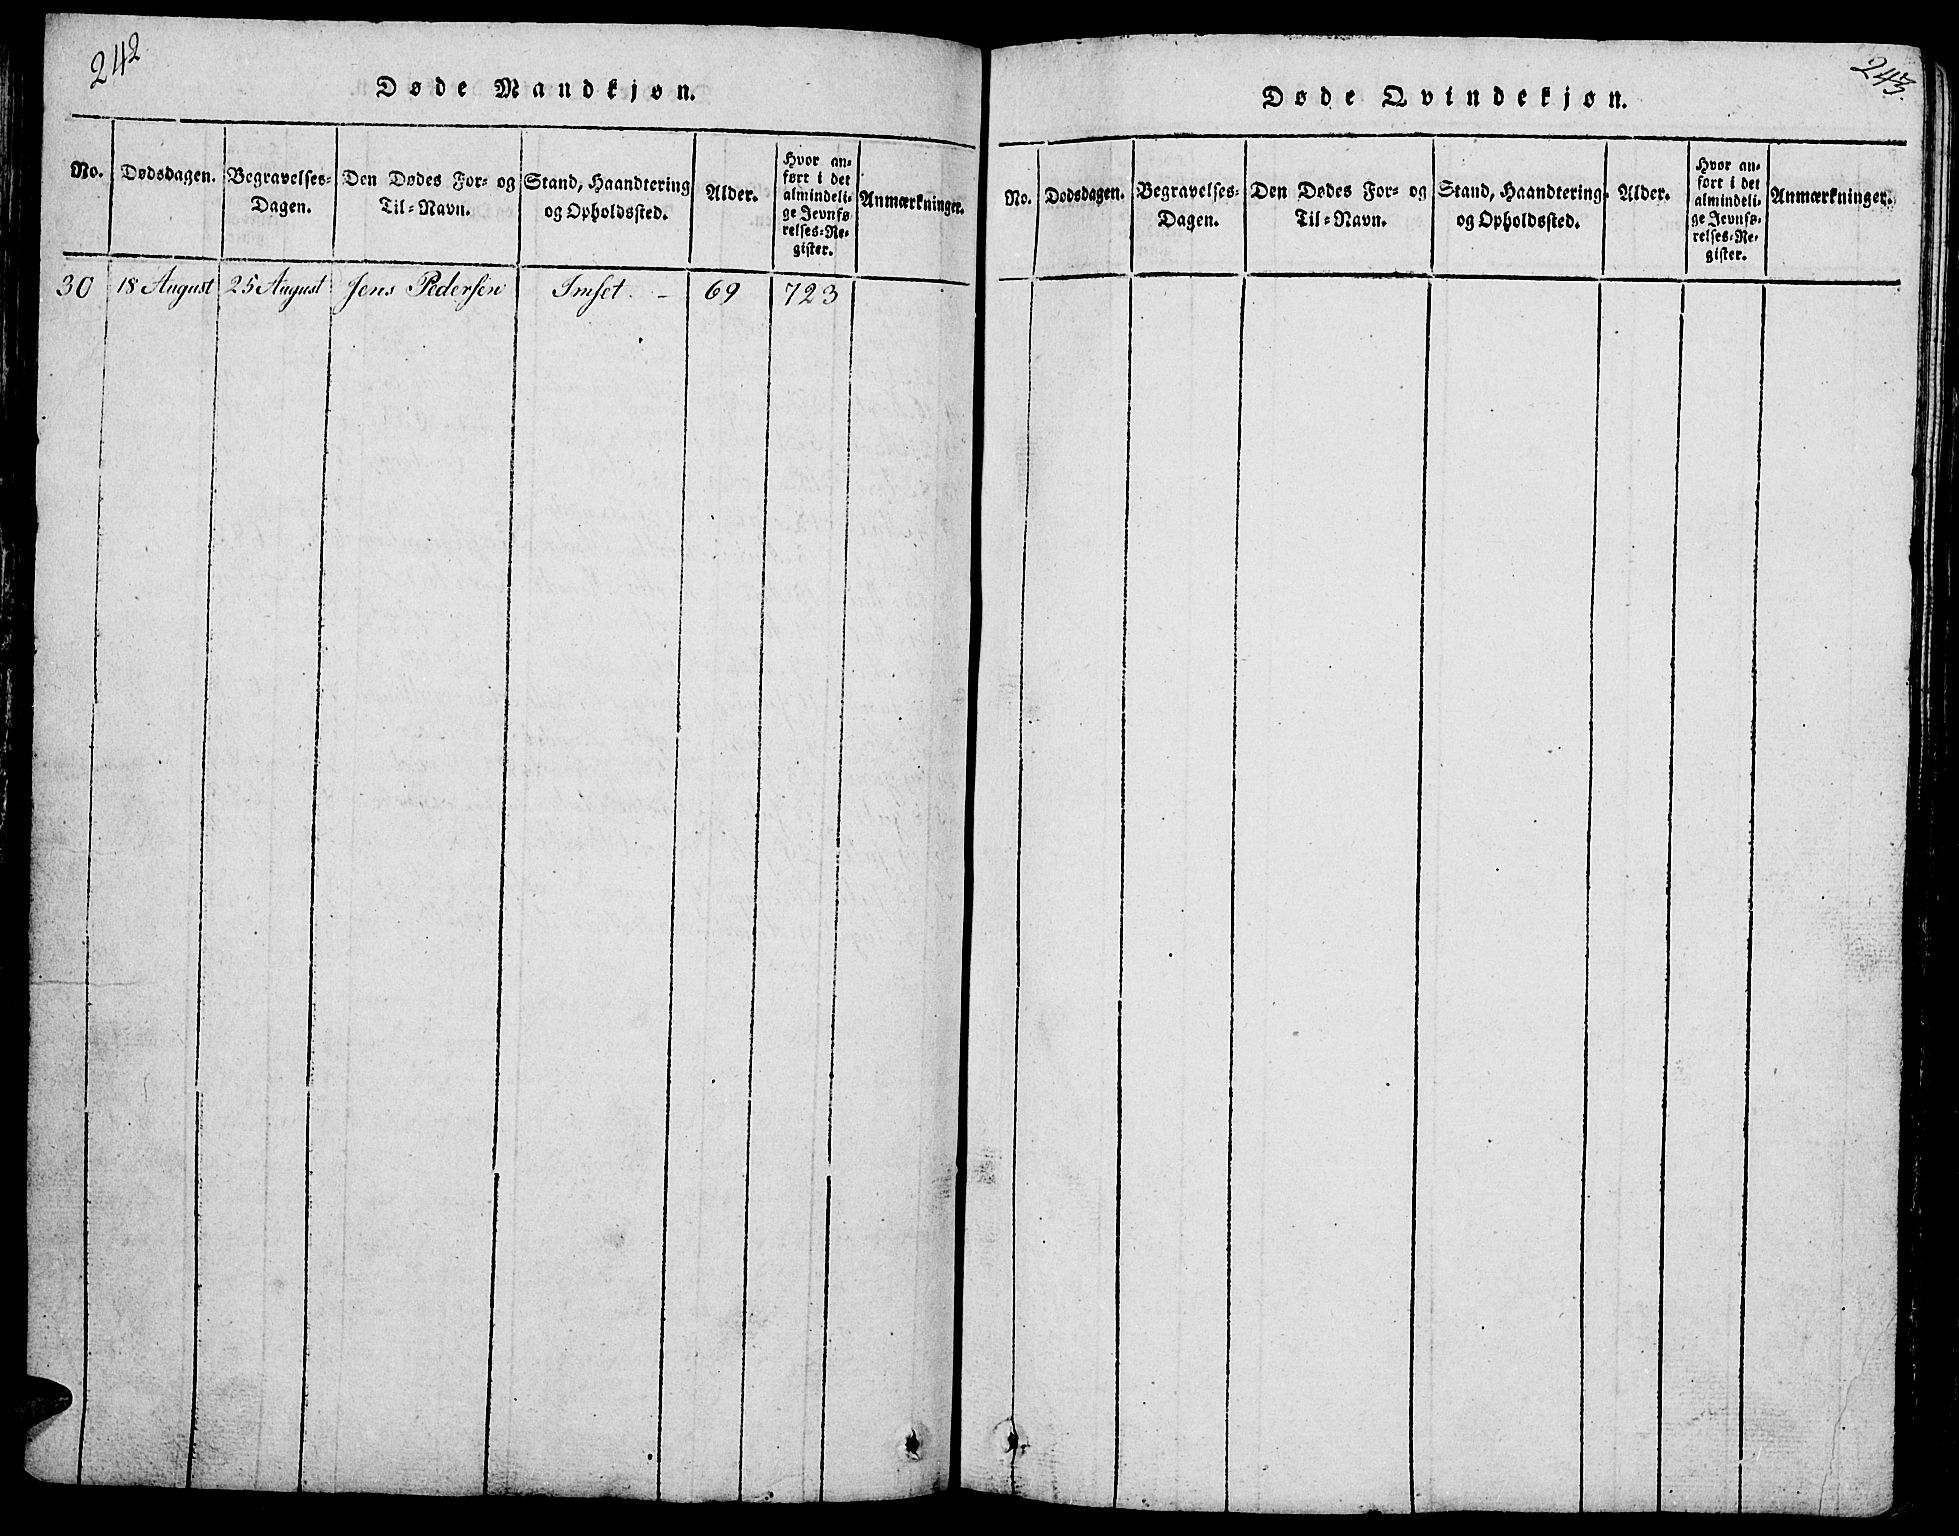 242
Døde Mandkjøn.
No.
Dødsdagen.
Begravelses-
Dagen.
Den Dødes For- og
Til-Navn.
Stand, Haandtering
og Opholdssted.
Alder.
Hvor an-
ført i det
almindeli-
ge Jevnfø-
relses-Re-
gister.
Anmærkninger.
30 18 August 25 August Jens Pedersen Imset. - 69 723
243.
Døde Qvindekjøn.
No.
Dødsdagen.
Begravelses-
Dagen.
Den Dødes For- og
Til-Navn.
Stand, Haandtering
og Opholdssted.
Alder.
Hvor an-
ført i det
almindeli-
ge Jevnfø-
relses-Re-
gister.
Anmærkninger.